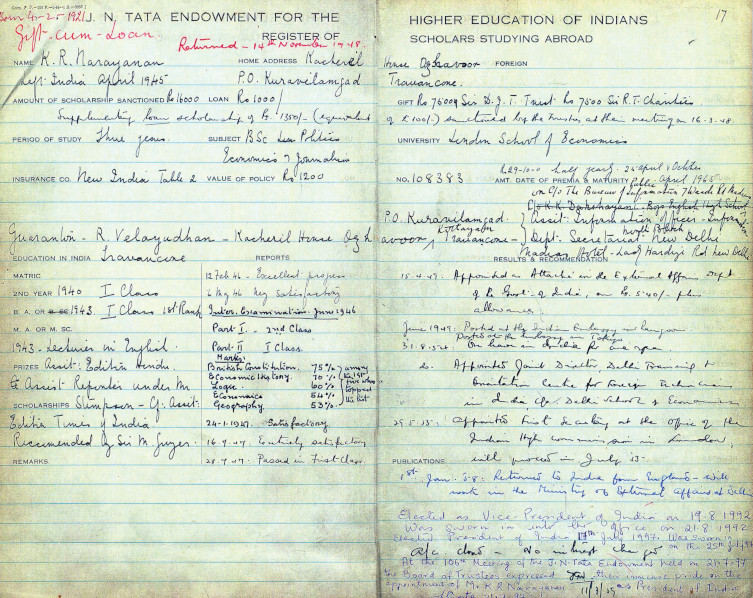 Born 4-2-1921
J. N. TATA ENDOWMENT FOR THE
Gift-cum-Loan
REGISTER OF
Returned - 14th November 1948.
NAME K. R. Narayanan
HOME ADDRESS Kacheril
left India April 1945
P.O. Kuravilamgad
AMOUNT OF SCHOLARSHIP SANCTIONED Rs 16000 LOAN Rs 1000/-
Supplementary loan scholarship of Rs 1350/- (equivalent
PERIOD OF STUDY Three years.
SUBJECT BSc Politics
Economics & Journalism
INSURANCE CO. New India Table 2 VALUE OF POLICY Rs 1200
Guarantor - R Velayudhan - Kacheril House
EDUCATION IN INDIA Travancore
REPORTS
MATRIC
12 Feb 46 - Excellent progress
2ND YEAR 1940 I Class
6 Aug 46 Very satisfactory
B. A. OR B. SC 1943. I Class 1st Rank
Inter. Examination. June 1946
M. A. OR M. SC.
Part I. - 2nd Class
1943 - Lecturer in English
Part II I Class.
Marks:
PRIZES Assist: Editor Hindu
British Constitution. 75%
Economic History. 70%
& Assist Reporter under Mr
Logic. 60%
Economics 54%
among the 1st five who topped the list
SCHOLARSHIPS Stimpson - Assist:
Geography 53%
Editor Times of India
24-1-1947. Satisfactory
Recommended by Sir M. Gwyer.
16.7.47. Entirely satisfactory
REMARKS
28.7.47. Passed in First Class.
HIGHER EDUCATION OF INDIANS
17
SCHOLARS STUDYING ABROAD
House
FOREIGN
Travancore.
GIFT Rs 7500 Sir D. J. T. Trust Rs 7500 Sir R. T. Charities
of £100/-) sanctioned by the Trustees at their meeting on 16-3-48.
UNIVERSITY London School of Economics
Rs 29-10-0 half yearly. 24 April & October
NO. 108383 AMT. DATE OF PREMIA & MATURITY April 1965
on C/o The Bureau of Public Information
P.O. Kuravilamgad
Kottayam
Travancore
Assist: Information Officer - Information
Dept. Secretariat North Block New Delhi
Madras Hotel - Lady Hardinge Rd New Delhi
RESULTS & RECOMMENDATION
15-4-49. Appointed as Attache in the External Affairs Dept
of the Govt. of India, on Rs. 540/- plus
allowances.
June 1949. Posted at the Indian Embassy in Rangoon
Posted at the Embassy in Tokyo
Appointed Joint Director, Delhi
Orientation Centre for Foreign Technicians
in India c/o Delhi School of Economics
Appointed First Secretary at the office of the
Indian High Commission in London,
will proceed in July
PUBLICATIONS
1st Jan. 58: Returned to India from England - will
work in the Ministry of External Affairs at Delhi
Elected as Vice-President of India on 19.8.1992
Was sworn in into the office on 21.8.1992
Elected President of India 17th July 1997. Was sworn in
on the 25th July 1997
A/c closed - No interest charged
At the 106th Meeting of the J.N Tata Endowment held on 21.7.97
the Board of Trustees expressed their immense pride on the
appointment of Mr K R Narayanan as President of India